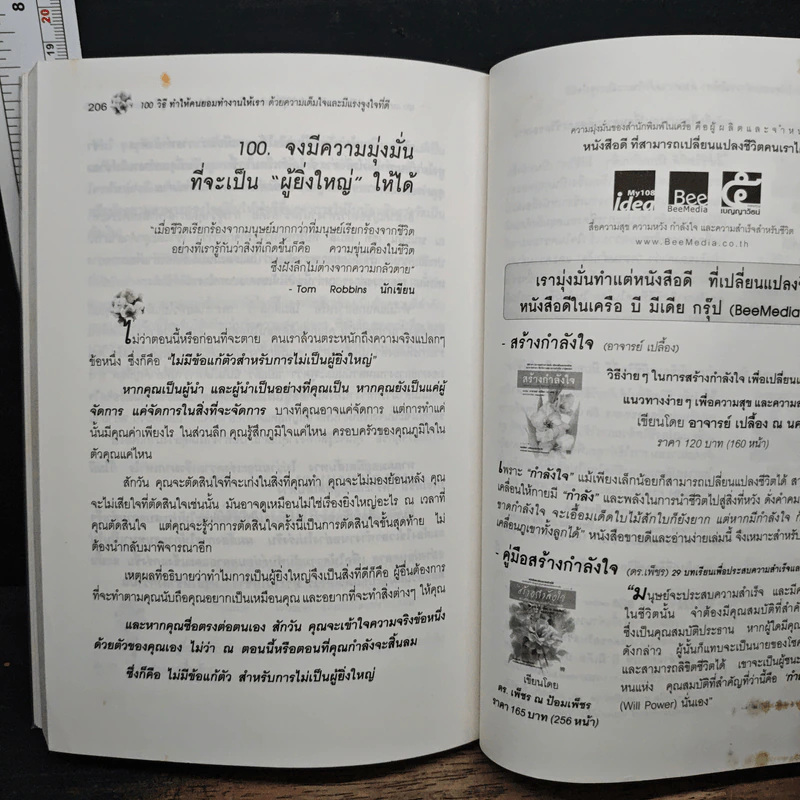 8
20
19
206
100 วิธี ทำให้คนยอมทำงานให้เรา ด้วยความเต็มใจและมีแรงจูงใจที่ดี
100. จงมีความมุ่งมั่น
ที่จะเป็น “ผู้ยิ่งใหญ่” ให้ได้
“เมื่อชีวิตเรียกร้องจากมนุษย์มากกว่าที่มนุษย์เรียกร้องจากชีวิต
อย่างที่เรารู้กันว่าสิ่งที่เกิดขึ้นก็คือ ความขุ่นเคืองในชีวิต
ซึ่งฝังลึกไม่ต่างจากความกลัวตาย”
- Tom Robbins นักเขียน
ไม่ว่าตอนนี้หรือก่อนที่จะตาย คนเราล้วนตระหนักถึงความจริงแปลกๆ
ข้อหนึ่ง ซึ่งก็คือ “ไม่มีข้อแก้ตัวสำหรับการไม่เป็นผู้ยิ่งใหญ่”
หากคุณเป็นผู้นำ และผู้นำเป็นอย่างที่คุณเป็น หากคุณยังเป็นแค่ผู้
จัดการ แค่จัดการในสิ่งที่จะจัดการ บางทีคุณอาจแค่จัดการ แต่การทำแค่
นั้นมีคุณค่าเพียงไร ในส่วนลึก คุณรู้สึกภูมิใจแค่ไหน ครอบครัวของคุณภูมิใจใน
ตัวคุณแค่ไหน
สักวัน คุณจะตัดสินใจที่จะเก่งในสิ่งที่คุณทำ คุณจะไม่มองย้อนหลัง คุณ
จะไม่เสียใจที่ตัดสินใจเช่นนั้น มันอาจดูเหมือนไม่ใช่เรื่องยิ่งใหญ่อะไร ณ เวลาที่
คุณตัดสินใจ แต่คุณจะรู้ว่าการตัดสินใจครั้งนี้เป็นการตัดสินใจขั้นสุดท้าย ไม่
ต้องนำกลับมาพิจารณาอีก
เหตุผลที่อธิบายว่าทำไมการเป็นผู้ยิ่งใหญ่จึงเป็นสิ่งที่ดีก็คือ ผู้อื่นต้องการ
ที่จะทำตามคุณนับถือคุณอยากเป็นเหมือนคุณ และอยากที่จะทำสิ่งต่างๆ ให้คุณ
และหากคุณซื่อตรงต่อตนเอง สักวัน คุณจะเข้าใจความจริงข้อหนึ่ง
ด้วยตัวของคุณเอง ไม่ว่า ณ ตอนนี้หรือตอนที่คุณกำลังจะสิ้นลม
ซึ่งก็คือ ไม่มีข้อแก้ตัว สำหรับการไม่เป็นผู้ยิ่งใหญ่
ความมุ่งมั่นของสำนักพิมพ์ในเครือ คือผู้ผลิตและจำห
หนังสือดี ที่สามารถเปลี่ยนแปลงชีวิตคนเราได
My108
idea
Bee
BeeMedia
เบญญาวิรฒน์
สื่อความสุข ความหวัง กำลังใจ และความสำเร็จสำหรับชีวิต
www.BeeMedia.co.th
เรามุ่งมั่นทำแต่หนังสือดี ที่เปลี่ยนแปลงชี
หนังสือดีในเครือ บี มีเดีย กรุ๊ป (BeeMedia
- สร้างกำลังใจ (อาจารย์ เปลื้อง)
สร้างกำลังใจ
วิธีง่ายๆ ในการสร้างกำลังใจ เพื่อเปลี่ยน
แนวทางง่ายๆ เพื่อความสุข และความส
เขียนโดย อาจารย์ เปลื้อง ณ นค
ราคา 120 บาท (160 หน้า)
เพราะ “กำลังใจ” แม้เพียงเล็กน้อยก็สามารถเปลี่ยนแปลงชีวิตได้ สา
เคลื่อนให้กายมี “กำลัง” และพลังในการนำชีวิตไปสู่สิ่งที่หวัง ดังคำคม
ขาดกำลังใจ จะเอื้อมเด็ดใบไม้สักใบก็ยังยาก แต่หากมีกำลังใจ ก็
เคลื่อนภูเขาทั้งลูกได้” หนังสือขายดีและอ่านง่ายเล่มนี้ จึงเหมาะสำหรับ
- คู่มือสร้างกำลังใจ (ดร.เพียร) 29 บทเรียนเพื่อประสบความสำเร็จและ
“มนุษย์จะประสบความสำเร็จ และมีค
ในชีวิตนั้น จำต้องมีคุณสมบัติที่สำคั
ซึ่งเป็นคุณสมบัติประธาน หากผู้ใดมีคุณ
ดังกล่าว ผู้นั้นก็แทบจะเป็นนายของโชค
และสามารถลิขิตชีวิตได้ เขาจะเป็นผู้ชนะ
หนแห่ง คุณสมบัติที่สำคัญที่ว่านี้คือ “กำ
(Will Power) นั่นเอง”
เขียนโดย
ดร. เพียร ณ ป้อมเพ็ชร
ราคา 165 บาท (256 หน้า)